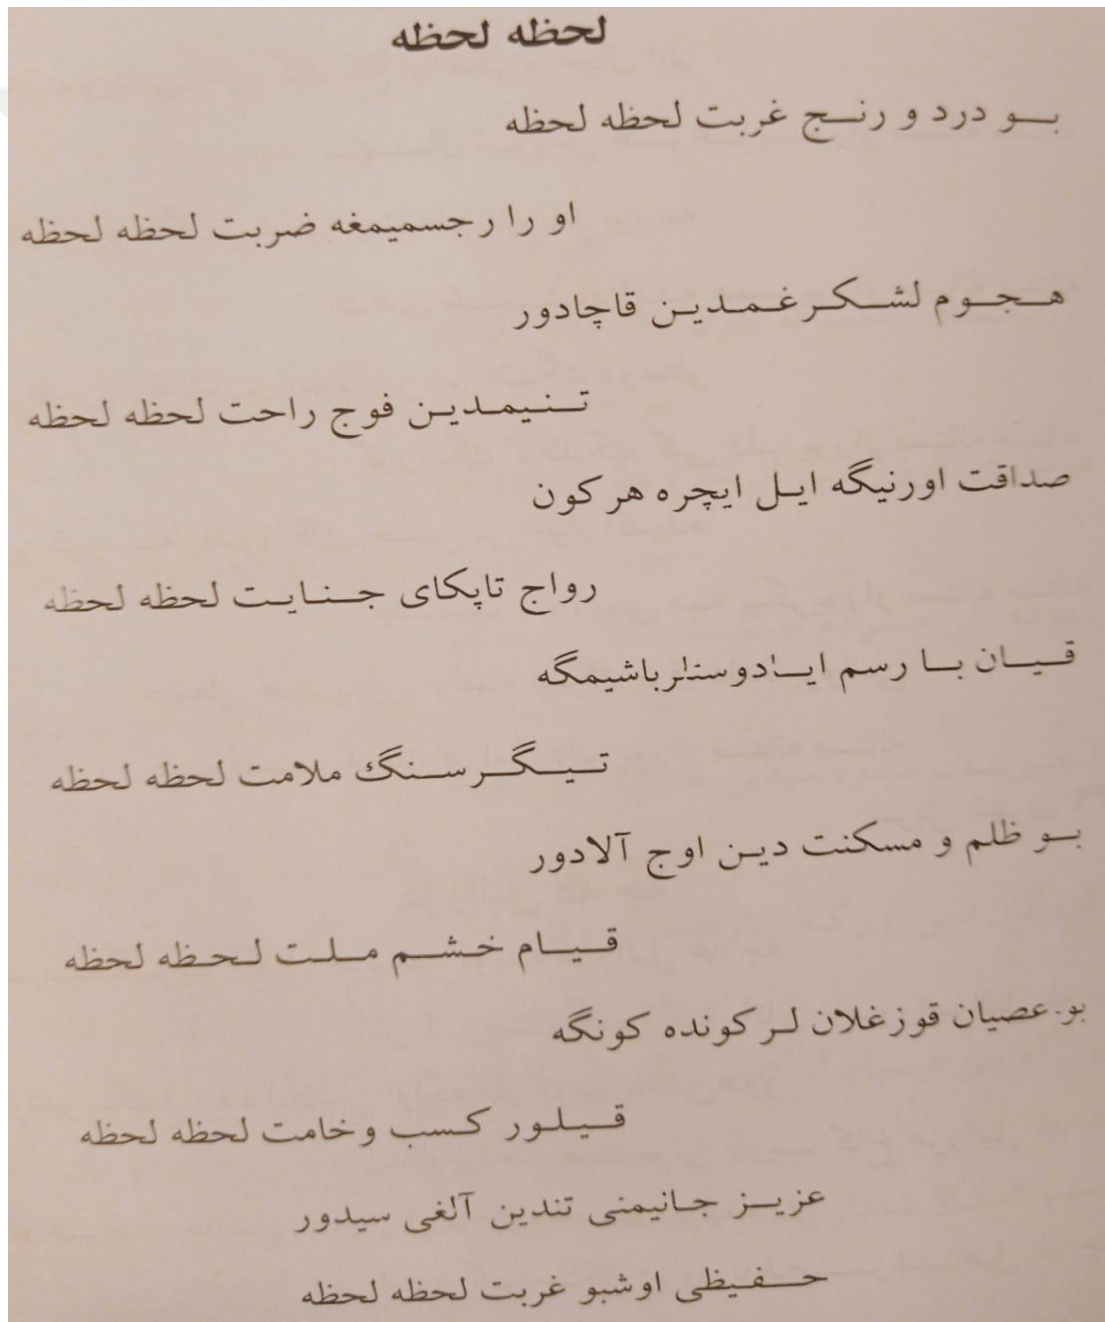 لحظه لحظه
بو درد و رنج غربت لحظه لحظه
او را ر جسمیمغه ضربت لحظه لحظه
هجوم لشکر غمدین قاچادور
تنیمدین فوج راحت لحظه لحظه
صداقت اورنیگه ایل ایچره هر کون
رواج تاپکای جنایت لحظه لحظه
قیان با رسم ایادوستلر باشیمگه
تیگر سنگ ملامت لحظه لحظه
بو ظلم و مسکنت دین اوج آلادور
قیام خشم ملت لحظه لحظه
بو عصیان قوزغلان لر کونده کونگه
قیلور کسب وخامت لحظه لحظه
عزیز جانیمنی تندین آلغی سیدور
حفیظی اوشبو غربت لحظه لحظه